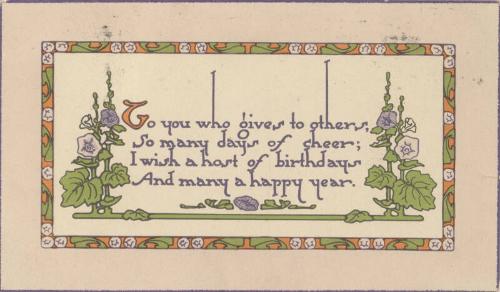 To you who gives to others,
So many days of cheer;
I wish a host of birthdays
And many a happy year.